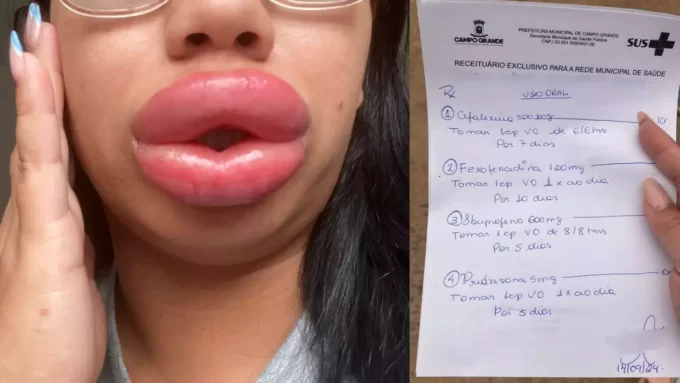 CAMPO GRANDE
PREFEITURA MUNICIPAL DE CAMPO GRANDE
Secretaria Municipal de Saúde Pública
SUS
RECEITUÁRIO EXCLUSIVO PARA A REDE MUNICIPAL DE SAÚDE
Rx USO ORAL
① Cefalexina 500mg
Tomar 1 cp VO de 6/6hs
Por 7 dias
② Fexofenadina 120mg
Tomar 1 cp VO 1 x ao dia
Por 10 dias
③ Ibuprofeno 600mg
Tomar 1 cp VO de 8/8 hrs
Por 5 dias
④ Prednisona 5mg
Tomar 1 cp VO 1 x ao dia
Por 5 dias